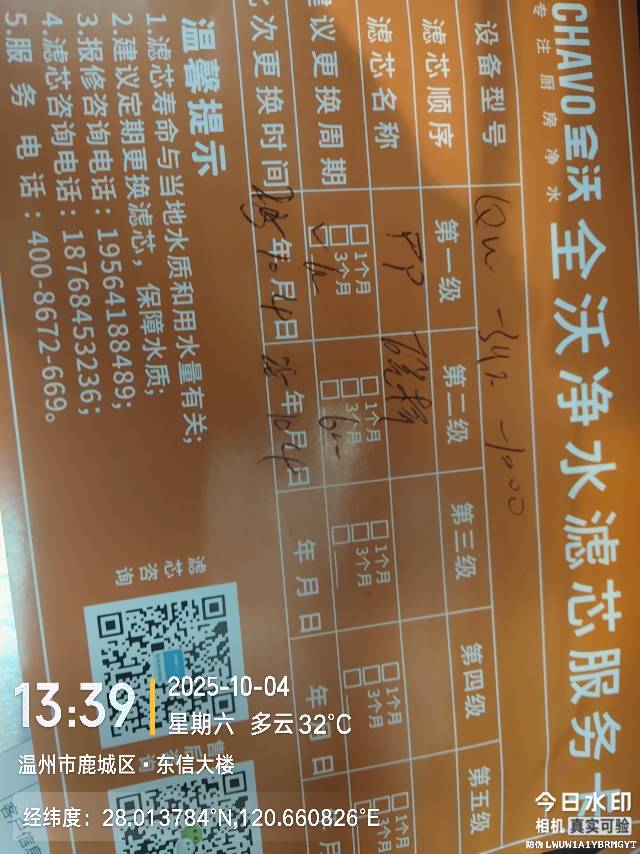 CHAVO全沃
专注厨房净水
全沃净水滤芯服务
设备型号
滤芯顺序 第一级 第二级 第三级 第四级 第五级
滤芯名称 PP
建议更换周期 1个月 3个月 1个月 3个月 1个月 3个月 1个月 3个月 1个月 3个月
此次更换时间 年 月 日 25年10月4日 年 月 日 年 月 日
温馨提示
1.滤芯寿命与当地水质和用水量有关;
2.建议定期更换滤芯，保障水质;
3.报修咨询电话：19564188489;
4.滤芯咨询电话：18768453236;
5.服务电话：400-8672-669。
滤芯咨询
13:39
2025-10-04
星期六 多云 32℃
温州市鹿城区·东信大楼
经纬度：28.013784°N,120.660826°E
今日水印
相机 真实可验
防伪 LWUW1A1YBRMGYT